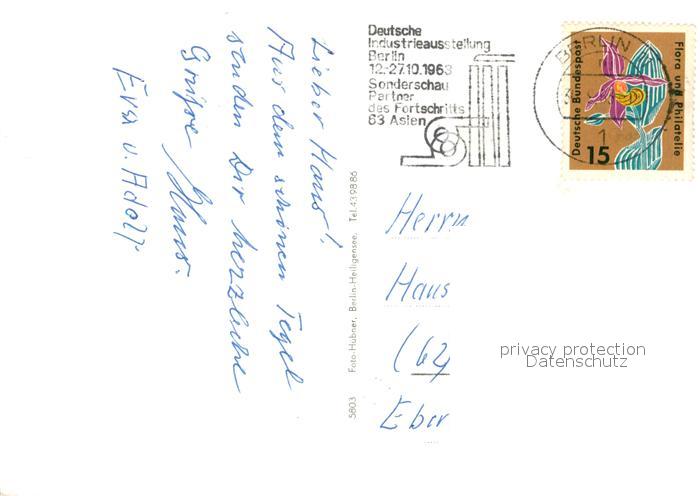 Lieber Hans!
Aus dem schönen Tegel
senden Dir herzliche
Grüße Hans.
Eva u. Adolf
5803 Foto-Hübner, Berlin-Heiligensee, Tel. 439886
Deutsche
Industrieausstellung
Berlin
12.-27.10.1963
Sonderschau
Partner
des Fortschritts
63 Asien
BERLIN
1
Deutsche Bundespost
Flora und Philatelie
15
Herrn
Hans
(62)
Eber
privacy protection
Datenschutz